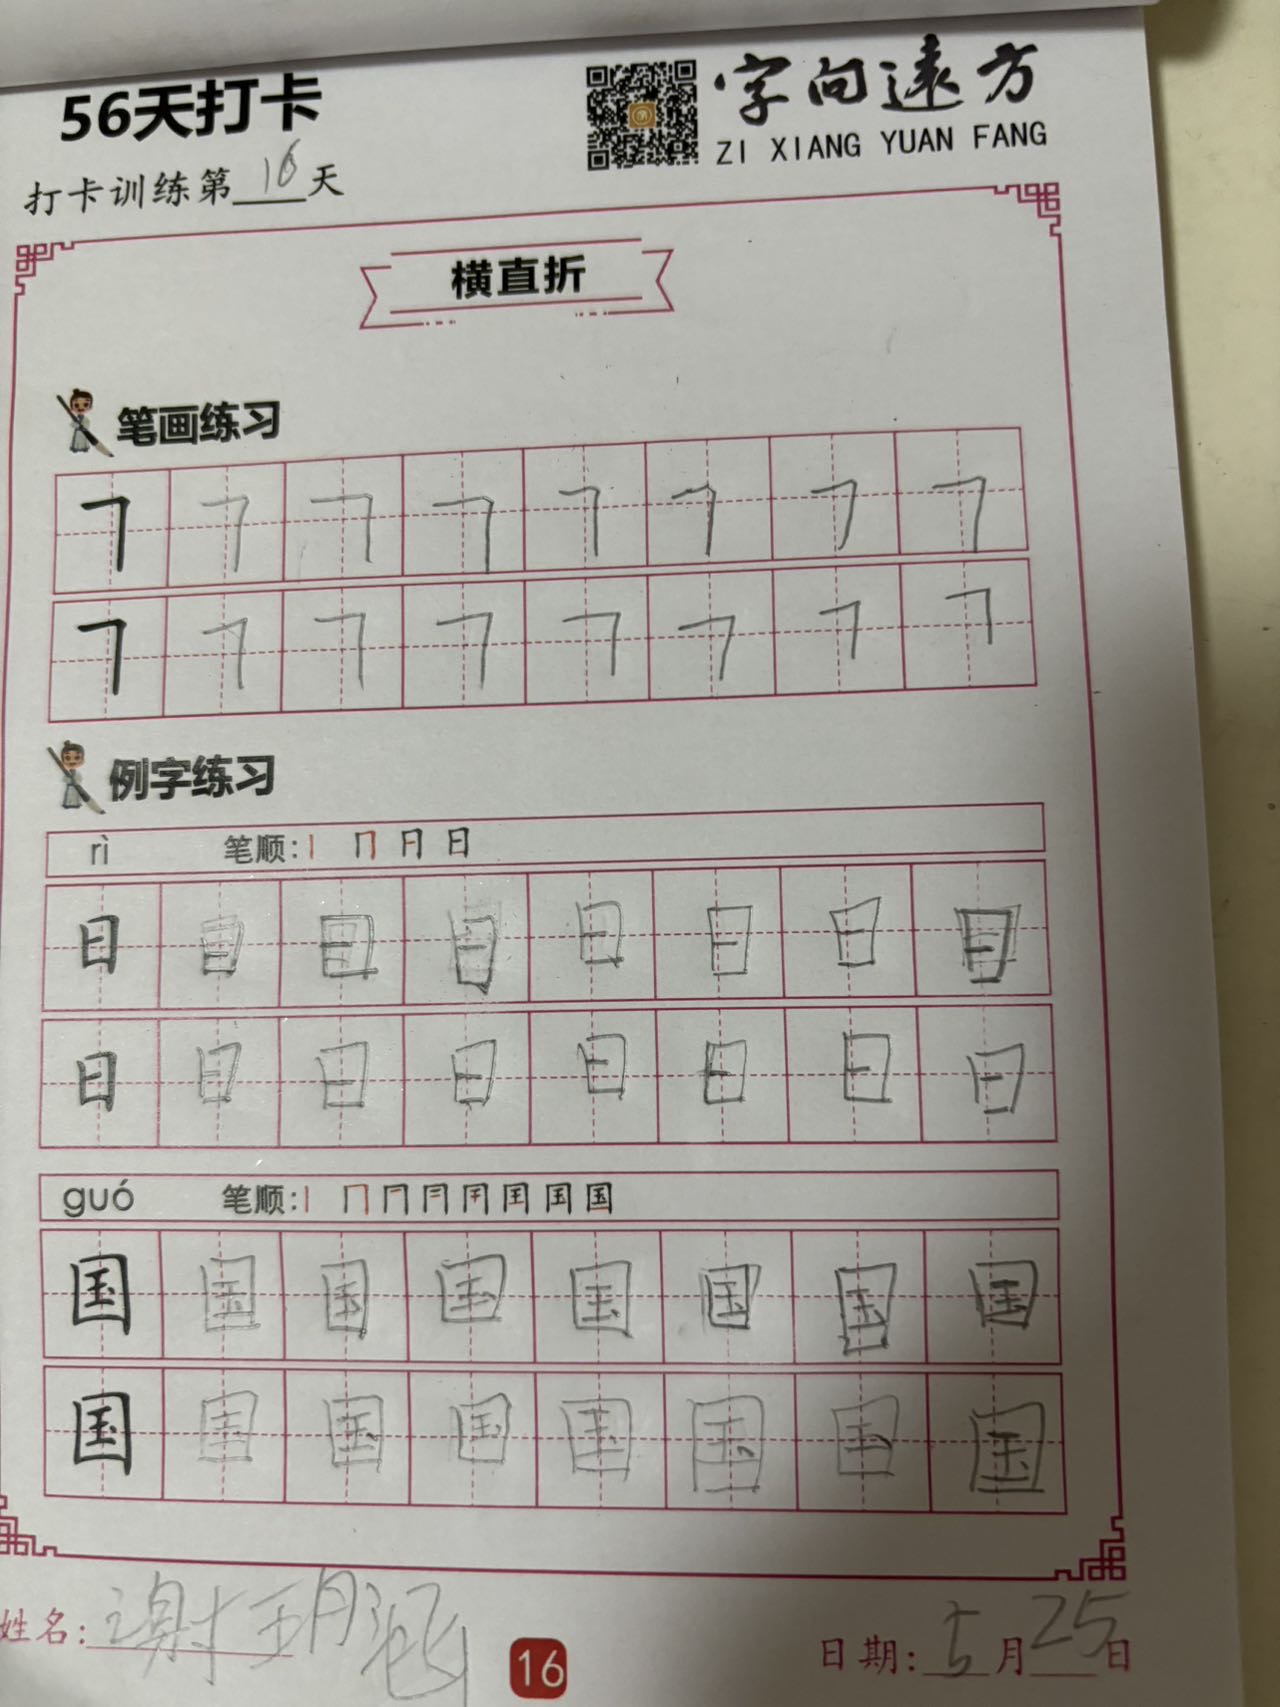 56天打卡
字向远方
ZI XIANG YUAN FANG
打卡训练第16天
横直折
笔画练习
㇕ ㇕ ㇕ ㇕ ㇕ ㇕ ㇕ ㇕
㇕ ㇕ ㇕ ㇕ ㇕ ㇕ ㇕ ㇕
例字练习
rì 笔顺:丨 冂 月 日
日 日 日 日 日 日 日 日
日 日 日 日 日 日 日 日
guó 笔顺:
国 国 国 国 国 国 国 国
国 国 国 国 国 国 国 国
姓名:谢玥
16
日期:5月25日